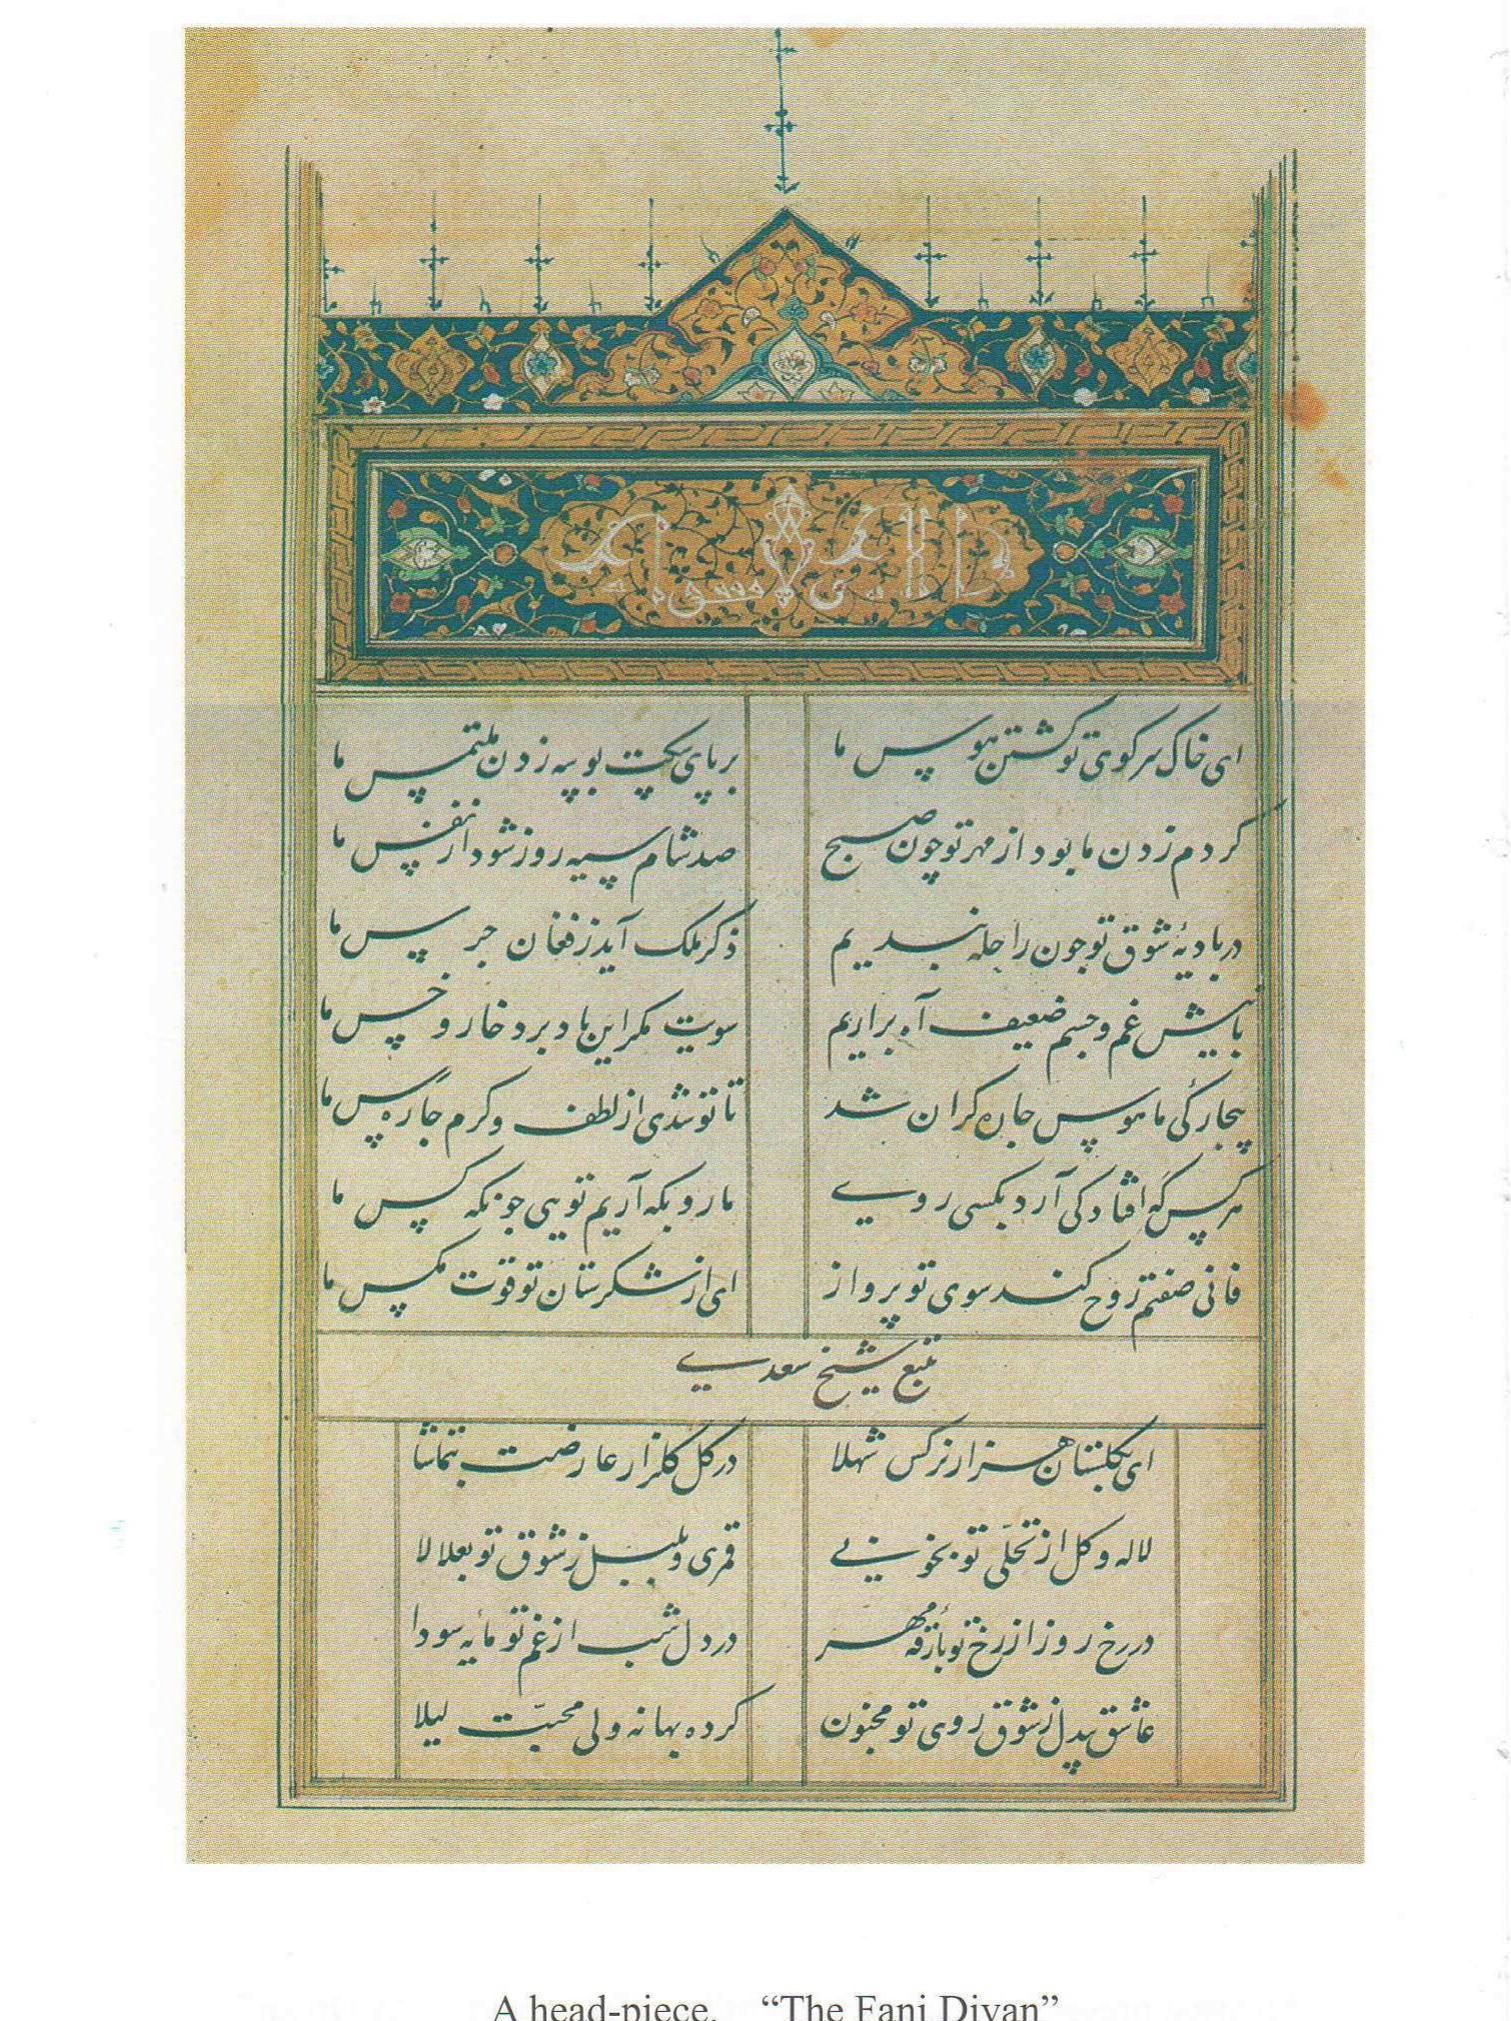 ای خاک سر کوی تو کشتن هوس ما
بر پای بوسه زدن ملتمس ما
کر دم زدن ما بود از مهر تو چون صبح
صد شام سیه روز شود از نفس ما
در بادیهٔ شوق تو چون راحله بندیم
ذکر ملک آید ز فغان جرس ما
با نیش غم و جسم ضعیف آه براریم
سویت مکر این باد برد خار و خس ما
بیچارکی ما هوس چاره کران شد
تا تو شدی از لطف و کرم چاره رس ما
هر کس که افتادکی آرد بکسی روی
ما رو بکه آریم تویی چونکه کس ما
فانی صفتم روح کند سوی تو پرواز
ای از شکرستان تو قوت مکس ما
تتبع شیخ سعدی
ای بکلستان هزار نرکس شهلا
در کل کلزار عارضت بتماشا
لاله و کل از تجلی تو بخوبی
قمری و بلبل ز شوق تو بعلالا
در رخ روز از رخ تو بارقه مهر
در دل شب از غم تو مایه سودا
عاشق بیدل ز شوق روی تو مجنون
کرده بهانه ولی محبت لیلا
A head-piece. “The Fani Divan”